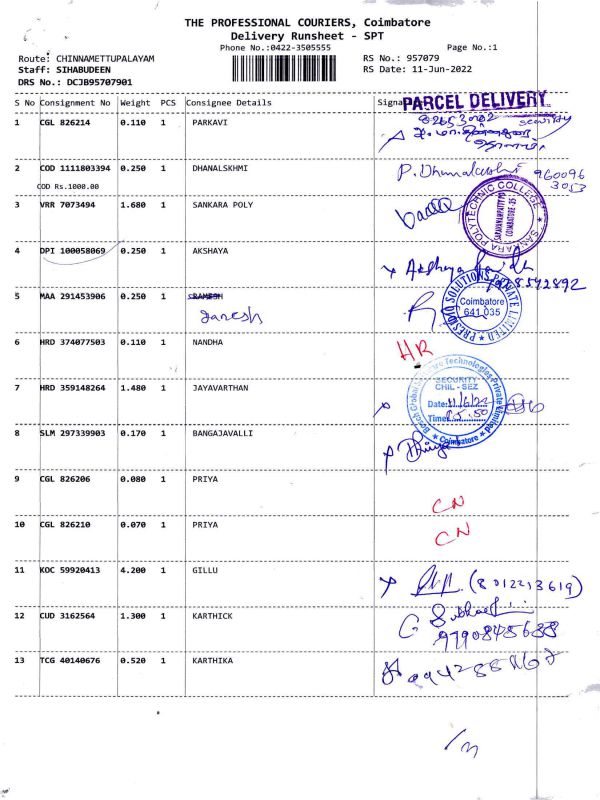 THE PROFESSIONAL COURIERS, Coimbatore
Delivery Runsheet - SPT
Phone No.:0422-3505555
Page No.:1
Route: CHINNAMETTUPALAYAM
RS No.: 957079
Staff: SIHABUDEEN
RS Date: 11-Jun-2022
DRS No.: DCJB95707901
S No Consignment No Weight PCS Consignee Details
PARCEL DELIVERY
1 CGL 826214 0.110 1 PARKAVI
security
2 COD 1111803394 0.250 1 DHANALSKHMI P. Dhanalakshmi 960096
COD Rs.1000.00 3053
3 VRR 7073494 1.680 1 SANKARA POLY
SANKARA POLYTECHNIC COLLEGE
SARAVANAMPATTY PO
COIMBATORE-35
4 DPI 100058069 0.250 1 AKSHAYA Akshaya
5 MAA 291453906 0.250 1 SRAMESH
ganesh
SOLUTIONS PRIVATE LIMITED
Coimbatore
641 035
6 HRD 374077503 0.110 1 NANDHA HR
7 HRD 359148264 1.480 1 JAYAVARTHAN
Bosch Global Software Technologies Private Limited
SECURITY
CHIL - SEZ
Date: 11/6/22
Time: 15.50
Coimbatore
8 SLM 297339903 0.170 1 BANGAJAVALLI
9 CGL 826206 0.080 1 PRIYA CN
10 CGL 826210 0.070 1 PRIYA CN
11 KOC 59920413 4.200 1 GILLU (8012213619)
12 CUD 3162564 1.300 1 KARTHICK
9790845688
13 TCG 40140676 0.520 1 KARTHIKA